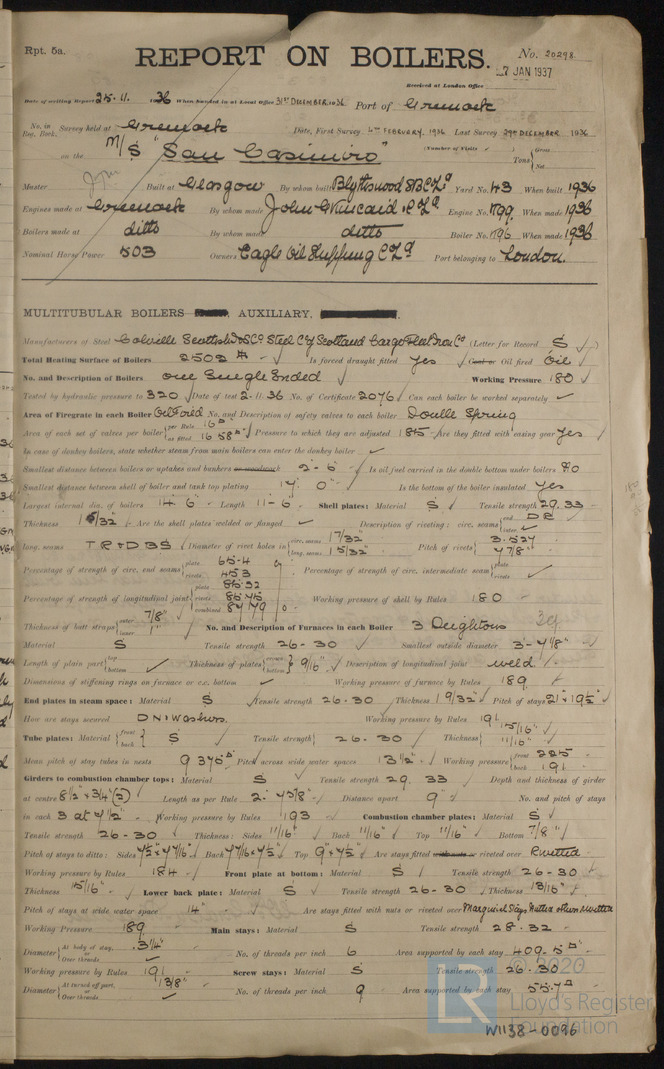 Rpt. 5a.
REPORT ON BOILERS.
No. 20298
7 JAN 1937
Received at London Office
Date of writing Report 25.11. 1936 When handed in at Local Office 31ST DECEMBER 1936 Port of Greenock
No. in Reg. Book. Survey held at Greenock Date, First Survey 4TH FEBRUARY, 1936 Last Survey 29TH DECEMBER 1936
on the M/S "San Casimiro" (Number of Visits ) Tons { Gross Net
Master Built at Glasgow By whom built Blythswood S B C Ld Yard No. 43 When built 1936
Engines made at Greenock By whom made John G Kincaid & C Ld Engine No. 1799 When made 1936
Boilers made at ditto By whom made ditto Boiler No. 1796 When made 1936
Nominal Horse Power 503 Owners Eagle Oil Shipping C Ld Port belonging to London.
MULTITUBULAR BOILERS AUXILIARY,
Manufacturers of Steel Colville Scottish I & S Co. Steel Cy Scotland Cargo Fleet Iron Co (Letter for Record S )
Total Heating Surface of Boilers 2502 Is forced draught fitted yes Oil fired Oil
No. and Description of Boilers one Single Ended Working Pressure 180
Tested by hydraulic pressure to 320 Date of test 2.11.36 No. of Certificate 2076 Can each boiler be worked separately
Area of Firegrate in each Boiler Oil Fired No. and Description of safety valves to each boiler Double Spring
Area of each set of valves per boiler { per Rule 16 as fitted 16.58 Pressure to which they are adjusted 185 Are they fitted with easing gear yes
In case of donkey boilers, state whether steam from main boilers can enter the donkey boiler
Smallest distance between boilers or uptakes and bunkers or woodwork 2'-6" Is oil fuel carried in the double bottom under boilers
Smallest distance between shell of boiler and tank top plating Is the bottom of the boiler insulated yes
Largest internal dia. of boilers 14'-6" Length 11'-6" Shell plates: Material S Tensile strength 29.33
Thickness 1 5/32" Are the shell plates welded or flanged Description of riveting: circ. seams { end DR inter.
long. seams TR & DBS Diameter of rivet holes in { circ. seams 1 7/32 long. seams 1 5/32" Pitch of rivets { 3.527 4 7/8"
Percentage of strength of circ. end seams { plate 65.4 rivets 45.3 Percentage of strength of circ. intermediate seam { plate rivets
Percentage of strength of longitudinal joint { plate 85.32 rivets 85.45 combined 87.79 Working pressure of shell by Rules 180
Thickness of butt straps { outer 7/8" inner 1" No. and Description of Furnaces in each Boiler 3 Deightons
Material S Tensile strength 26-30 Smallest outside diameter 3'-7 1/8"
Length of plain part { top bottom Thickness of plates { crown bottom } 9/16" Description of longitudinal joint weld
Dimensions of stiffening rings on furnace or c.c. bottom Working pressure of furnace by Rules 189
End plates in steam space: Material S Tensile strength 26-30 Thickness 1 9/32" Pitch of stays 21" x 19 1/2"
How are stays secured DN & Washers. Working pressure by Rules 191
Tube plates: Material { front back } S Tensile strength } 26-30 Thickness { 15/16" 11/16"
Mean pitch of stay tubes in nests 9.375" Pitch across wide water spaces 13 1/2" Working pressure { front 225 back 191
Girders to combustion chamber tops: Material S Tensile strength 29.33 Depth and thickness of girder
at centre 8 1/2" x 3/4" (2) Length as per Rule 2'-7 5/8" Distance apart 9" No. and pitch of stays
in each 3 at 7 1/2" Working pressure by Rules 193 Combustion chamber plates: Material S
Tensile strength 26-30 Thickness: Sides 11/16" Back 11/16" Top 11/16" Bottom 7/8"
Pitch of stays to ditto: Sides 7 1/2" x 7 7/16" Back 7 7/16" x 7 1/2" Top 9" x 7 1/2" Are stays fitted or riveted over Riveted
Working pressure by Rules 184 Front plate at bottom: Material S Tensile strength 26-30
Thickness 15/16" Lower back plate: Material S Tensile strength 26-30 Thickness 13/16"
Pitch of stays at wide water space 14" Are stays fitted with nuts or riveted over Marginal Stays Nutted others Riveted
Working Pressure 189 Main stays: Material S Tensile strength 28.32
Diameter { At body of stay, or Over threads 3 1/4" No. of threads per inch 6 Area supported by each stay 409.5
Working pressure by Rules 191 Screw stays: Material S Tensile strength 26-30
Diameter { At turned off part, or Over threads 1 3/8" No. of threads per inch 9 Area supported by each stay 55.7
© 2020
Lloyd's Register
Foundation
W1138-0096